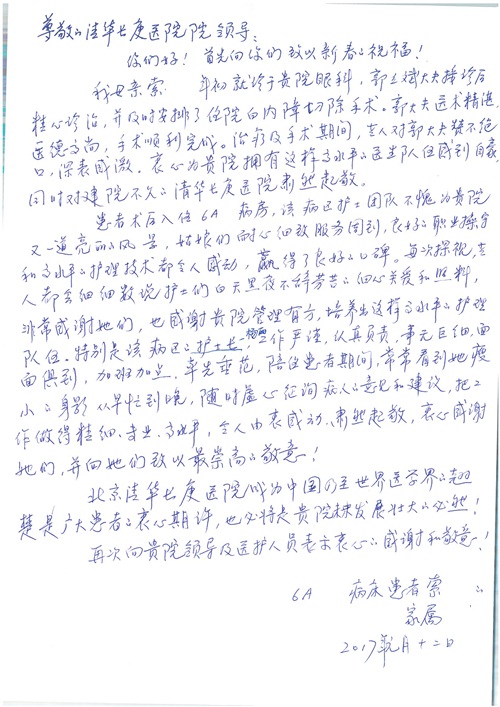 尊敬的清华长庚医院院领导:
你们好！首先向你们致以新春的祝福！
我母亲索 年初就诊于贵院眼科，郭 斌大夫接诊后
精心诊治，并及时安排了住院白内障切除手术。郭大夫医术精湛
医德高尚，手术顺利完成。治疗及手术期间，老人对郭大夫赞不绝
口，深表感激。衷心为贵院拥有这样高水平的医生队伍感到自豪
同时对建院不久的清华长庚医院肃然起敬。
患者术后入住6A 病房，该病区护士团队不愧为贵院
又一道亮丽风景，姑娘们耐心细致服务周到，良好的职业操守
和高水平的护理技术都令人感动，赢得了良好的口碑。每次探视，老
人都会细细数说护士们白天黑夜不辞劳苦的细心关爱和照料，
非常感谢她们，也感谢贵院管理有方，培养出这样高水平的护理
队伍。特别是该病区的护士长 工作严谨，认真负责，事无巨细，面
面俱到，加班加点，率先垂范，陪住患者期间，常常看到她瘦
小的身影从早忙到晚，随时虚心征询病人的意见和建议，把工
作做得精细、专业、高水平，令人由衷感动、肃然起敬，衷心感谢
她们，并向她们致以最崇高的敬意！
北京清华长庚医院成为中国乃至世界医学界的翘
楚是广大患者的衷心期许，也必将是贵院未来发展壮大的必然！
再次向贵院领导及医护人员表示衷心的感谢和敬意！
6A 病床患者索
家属
2017年 月十二日